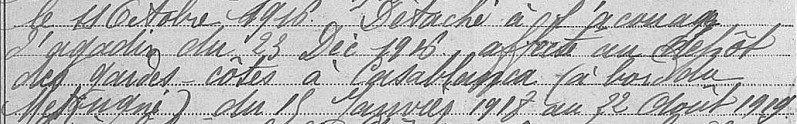 le 11 Octobre 1916. Détaché à
d'Agadir du 23 Déc 1916. affecté au dépôt
des gardes-côtes à Casablanca (à bord du
) du 15 Janvier 1917 au 22 Août 1919